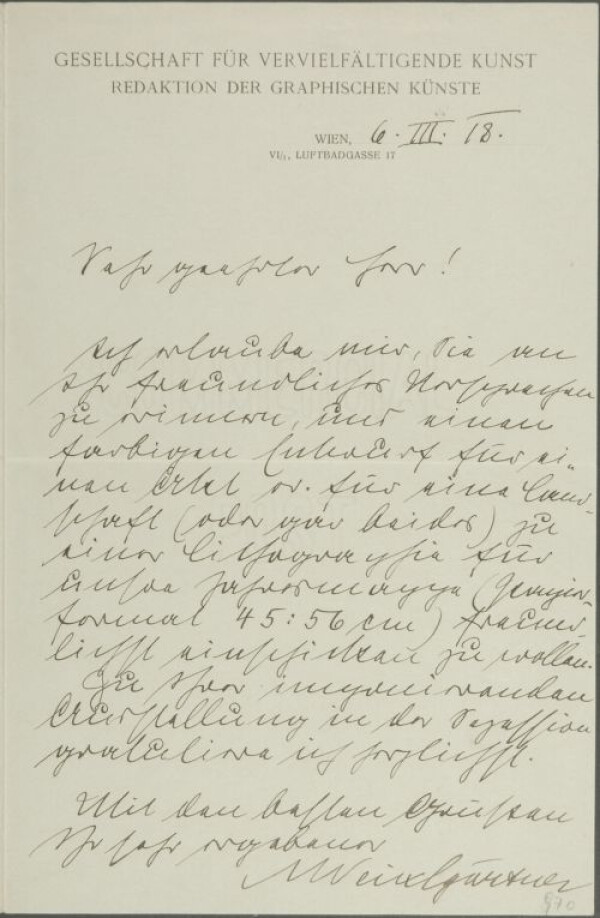 GESELLSCHAFT FÜR VERVIELFÄLTIGENDE KUNST
REDAKTION DER GRAPHISCHEN KÜNSTE
WIEN, 6. III. 18.
VI/1, LUFTBADGASSE 17
Sehr geehrter Herr!
Ich erlaube mir, Sie an
Ihr freundliches Versprechen
zu erinnern, uns einen
farbigen Entwurf für ei-
nen Akt od. für eine Land-
schaft (oder gar beides) zu
einer Lithographie für
unsre Jahresmappe (Papier-
format 45:56 cm) freund-
lichst einschicken zu wollen.
Zu Ihrer imponierenden
Ausstellung in der Sezession
gratuliere ich herzlichst.
Mit den besten Grüssen
Ihr sehr ergebener
Weixlgärtner
970